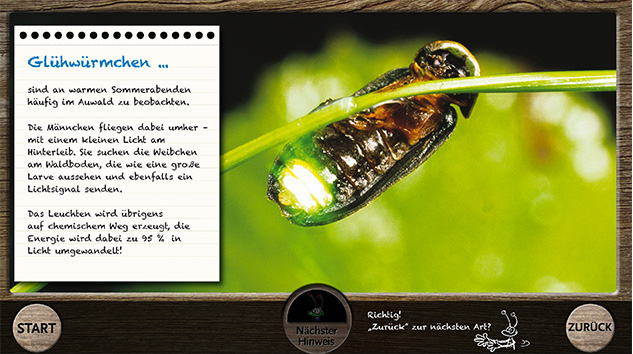 Glühwürmchen ...
sind an warmen Sommerabenden
häufig im Auwald zu beobachten.
Die Männchen fliegen dabei umher –
mit einem kleinen Licht am
Hinterleib. Sie suchen die Weibchen
am Waldboden, die wie eine große
Larve aussehen und ebenfalls ein
Lichtsignal senden.
Das Leuchten wird übrigens
auf chemischem Weg erzeugt, die
Energie wird dabei zu 95 % in
Licht umgewandelt!
START
Nächster
Hinweis
Richtig!
„Zurück“ zur nächsten Art?
ZURÜCK